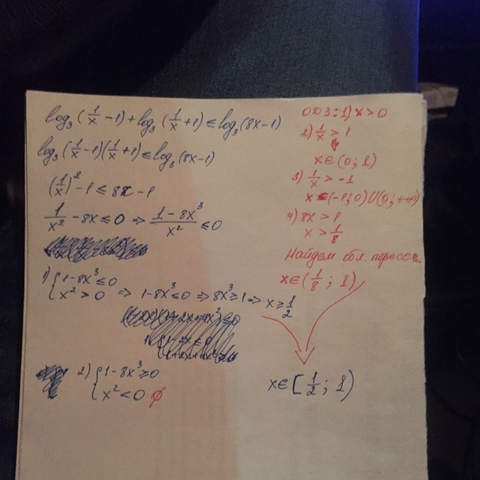 log₃(1/x −1)+log₃(1/x +1) ≤ log₃(8x−1)
log₃(1/x −1)(1/x +1) ≤ log₃(8x−1)
(1/x)² −1 ≤ 8x −1
1/x² − 8x ≤ 0 ⇒ (1−8x³)/x² ≤ 0
1) { 1−8x³ ≤ 0
x² > 0 ⇒ 1−8x³ ≤ 0 ⇒ 8x³ ≥ 1 ⇒ x ≥ 1/2
2) { 1−8x³ ≥ 0
x² < 0 ∅
ОДЗ: 1) x > 0
2) 1/x > 1
x ∈ (0; 1)
3) 1/x > −1
4) 8x > 1
x > 1/8
Найдем обл. пересеч.
x ∈ (1/8 ; 1)
x ∈ [1/2 ; 1)